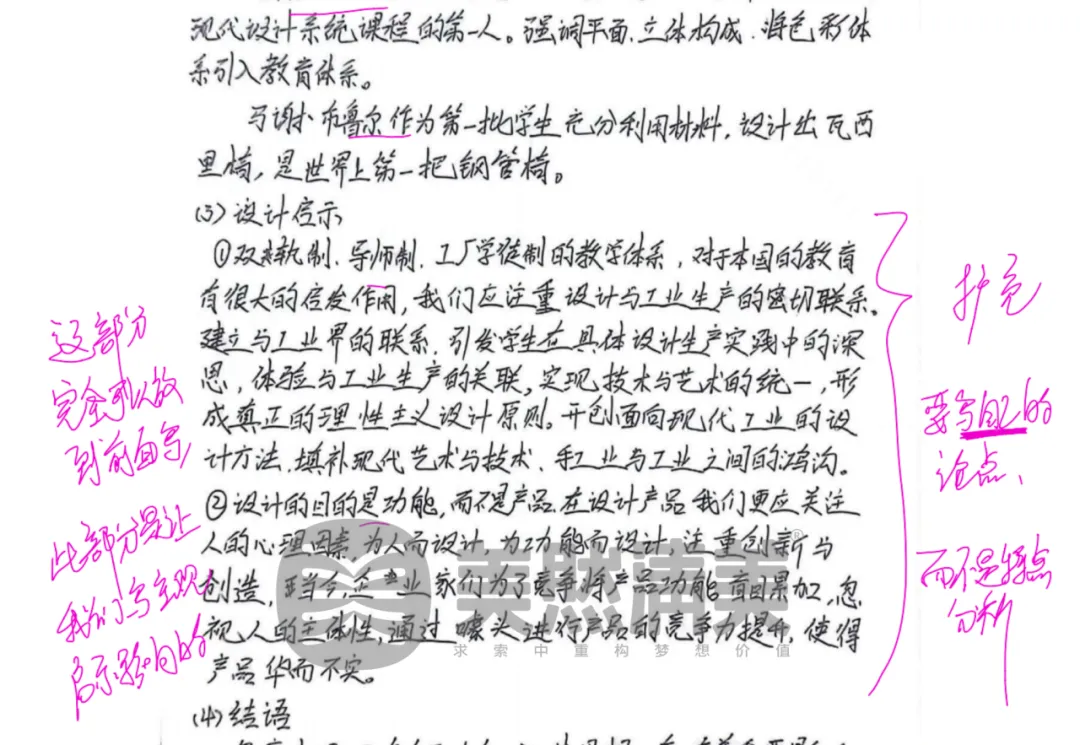 现代设计系统课程的第一人。强调平面、立体构成、将色彩体
系引入教育体系。
马谢尔·布鲁尔作为第一批学生充分利用材料，设计出瓦西
里椅，是世界上第一把钢管椅。
(3)设计启示
①双轨制、导师制、工厂学徒制的教学体系，对于本国的教育
有很大的启发作用，我们应注重设计与工业生产的密切联系。
建立与工业界的联系，引发学生在具体设计生产实践中的深
思，体验与工业生产的关联，实现技术与艺术的统一，形
成真正的理性主义设计原则。开创面向现代工业的设
计方法，填补现代艺术与技术、手工业与工业之间的鸿沟。
②设计的目的是功能，而不是产品。在设计产品我们更应关注
人的心理因素，为人而设计，为功能而设计，注重创新与
创造，当今，企业家们为了竞争，将产品功能盲目累加，忽
视人的主体性，通过噱头进行产品的竞争力提升，使得
产品华而不实。
(4)结语
这部分
完全可以放
到前面写
此部分是让
我们写主观
启示影响的
扩充
要写自己的
论点、
而不是特点
分析
美然清美
求索中重构梦想价值